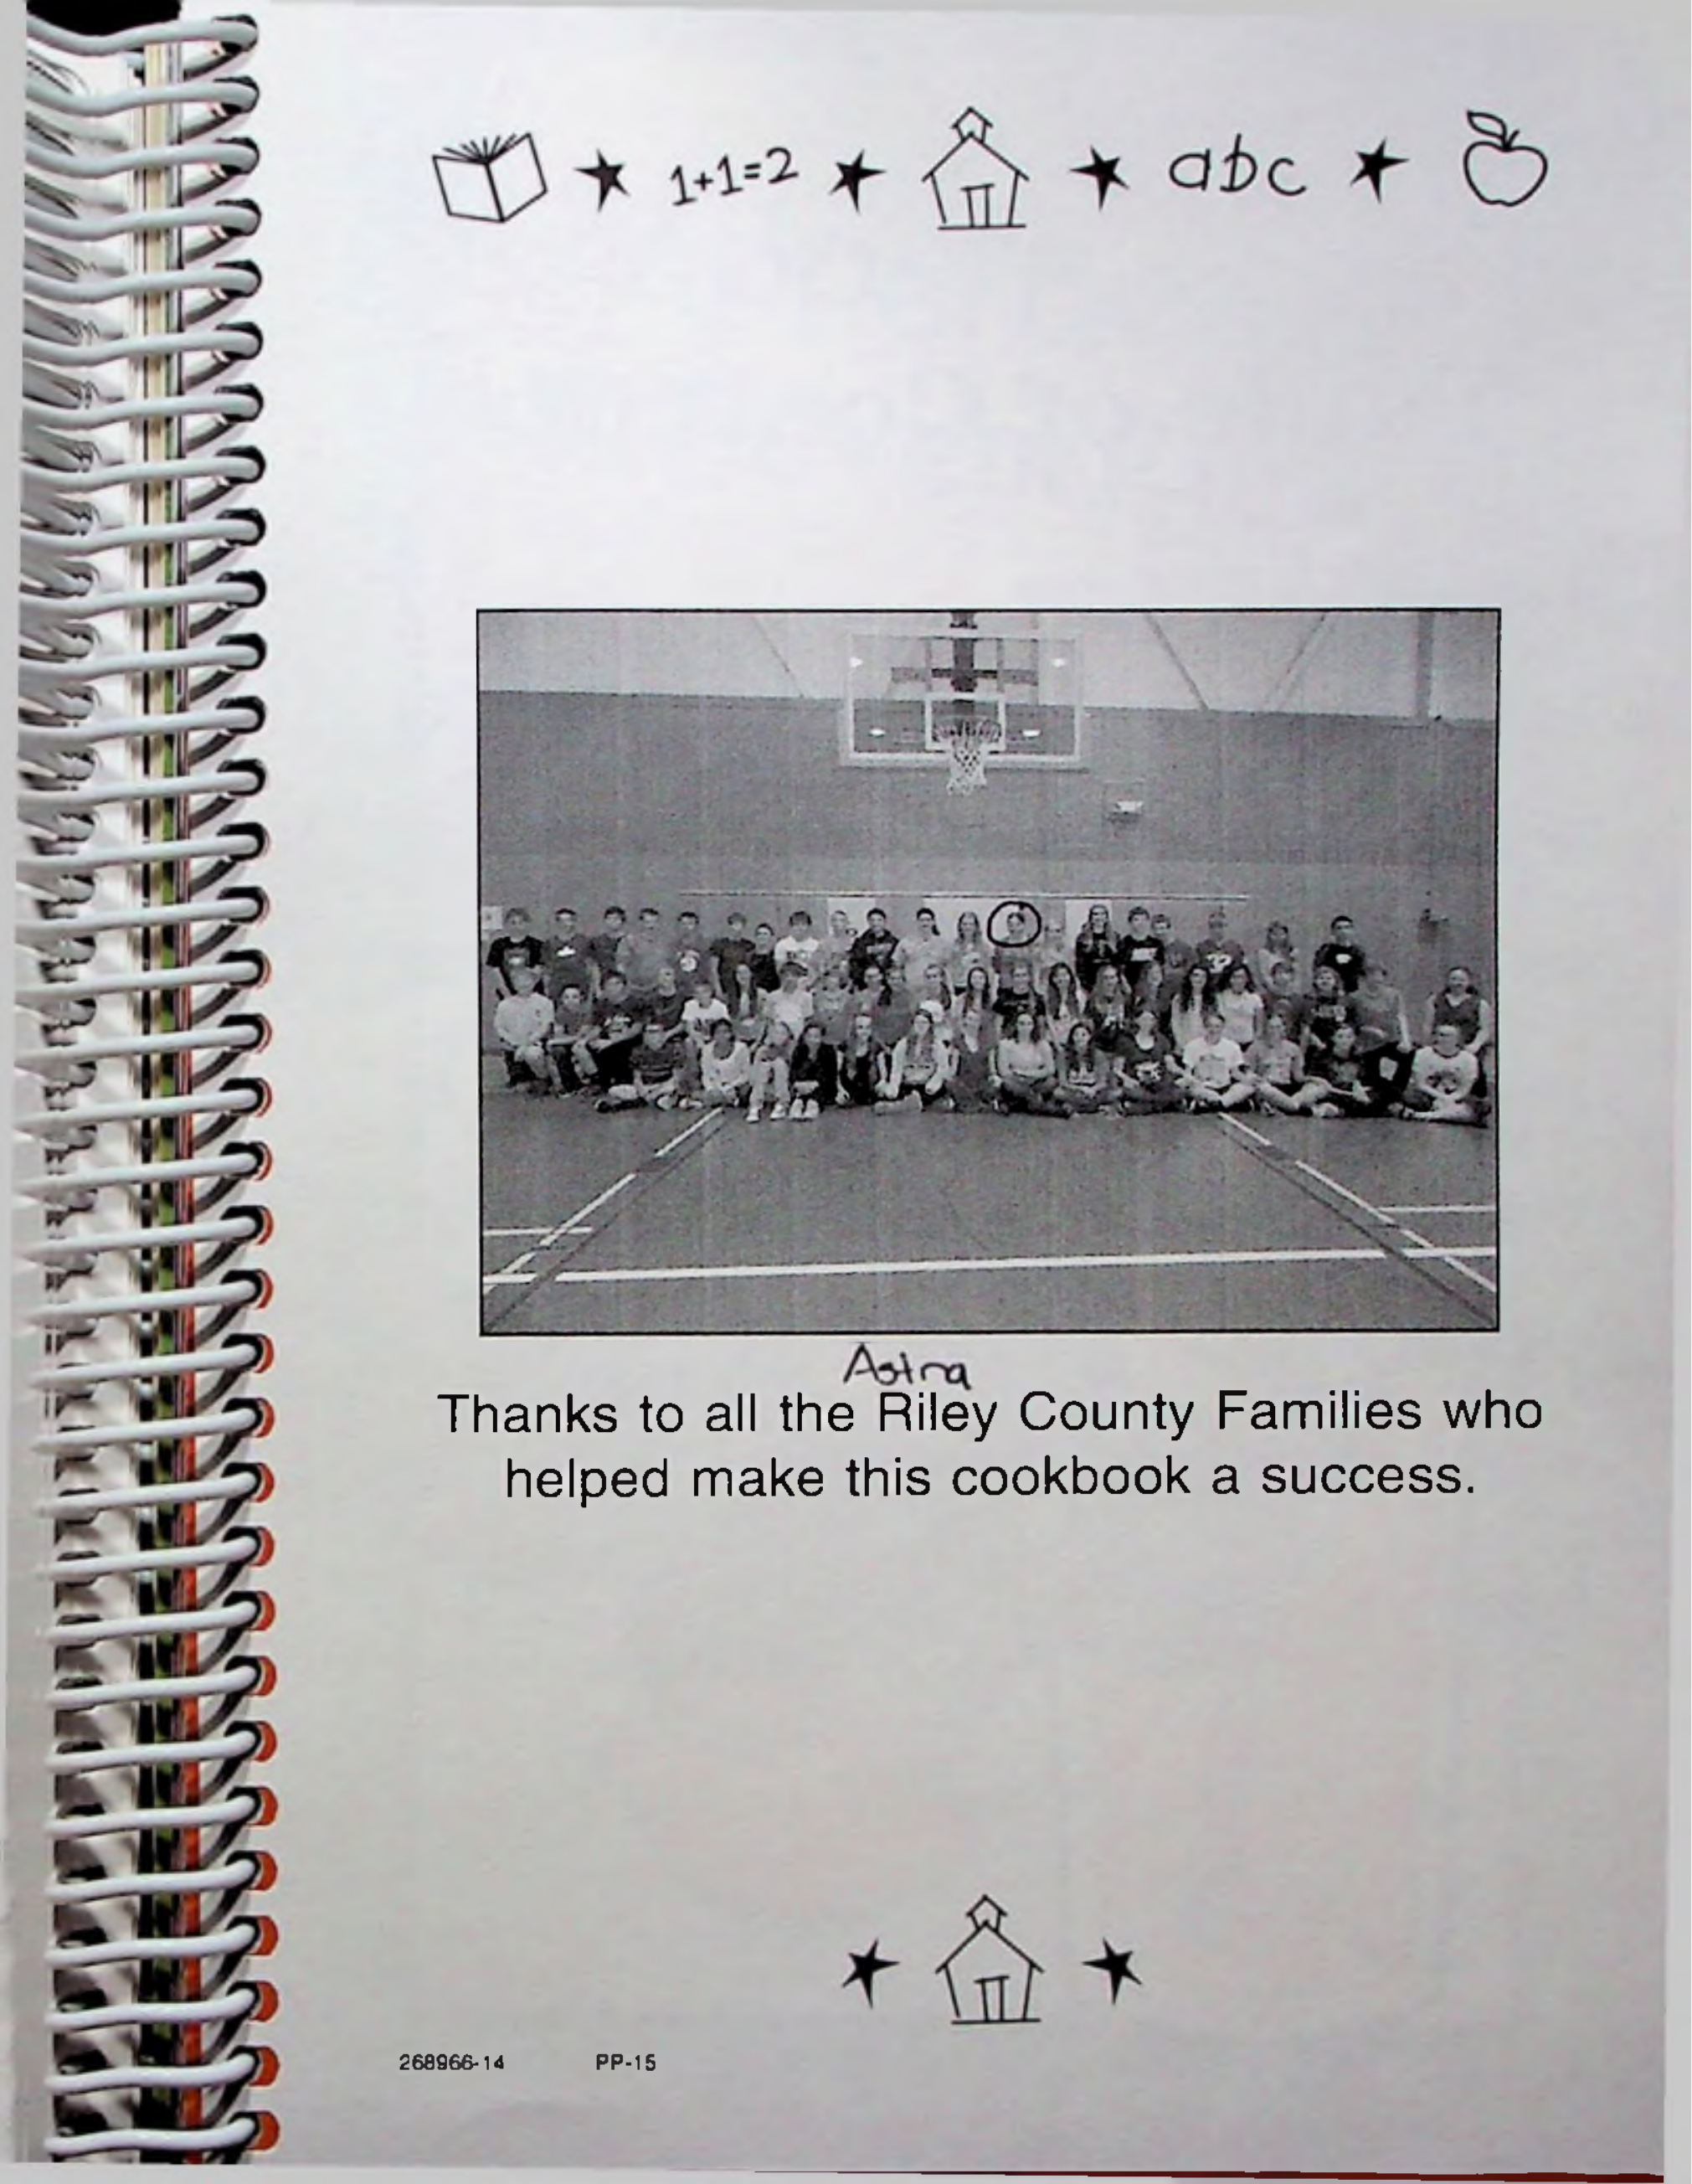 1+1=2 abc
Astra
Thanks to all the Riley County Families who
helped make this cookbook a success.
268966-14 PP-15